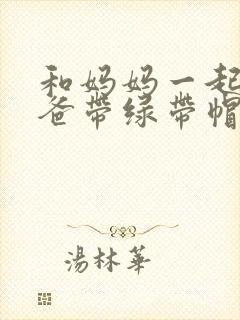 和妈妈一起
爸带绿带帽
湯林華